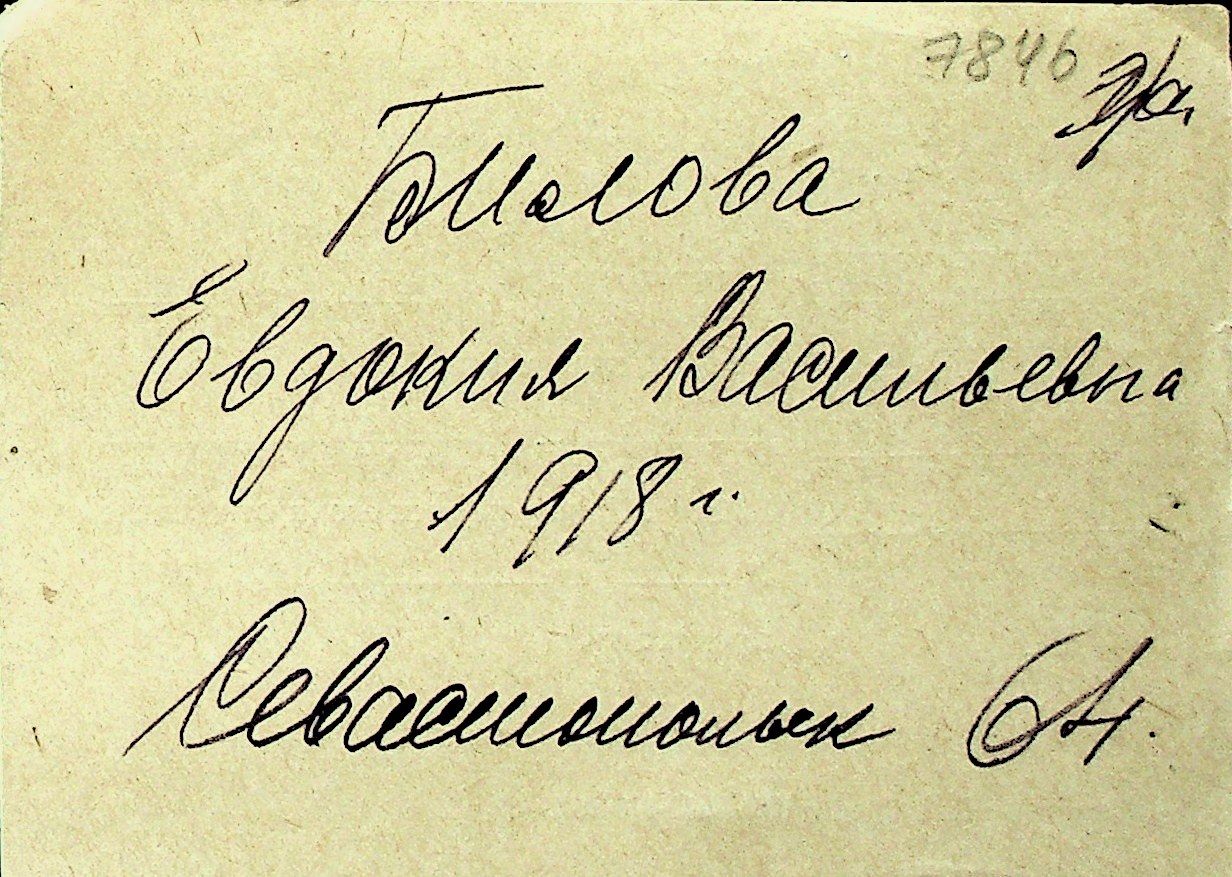 7846
Билова
Евдокия Васильевна
1918 г.
Севастопольск